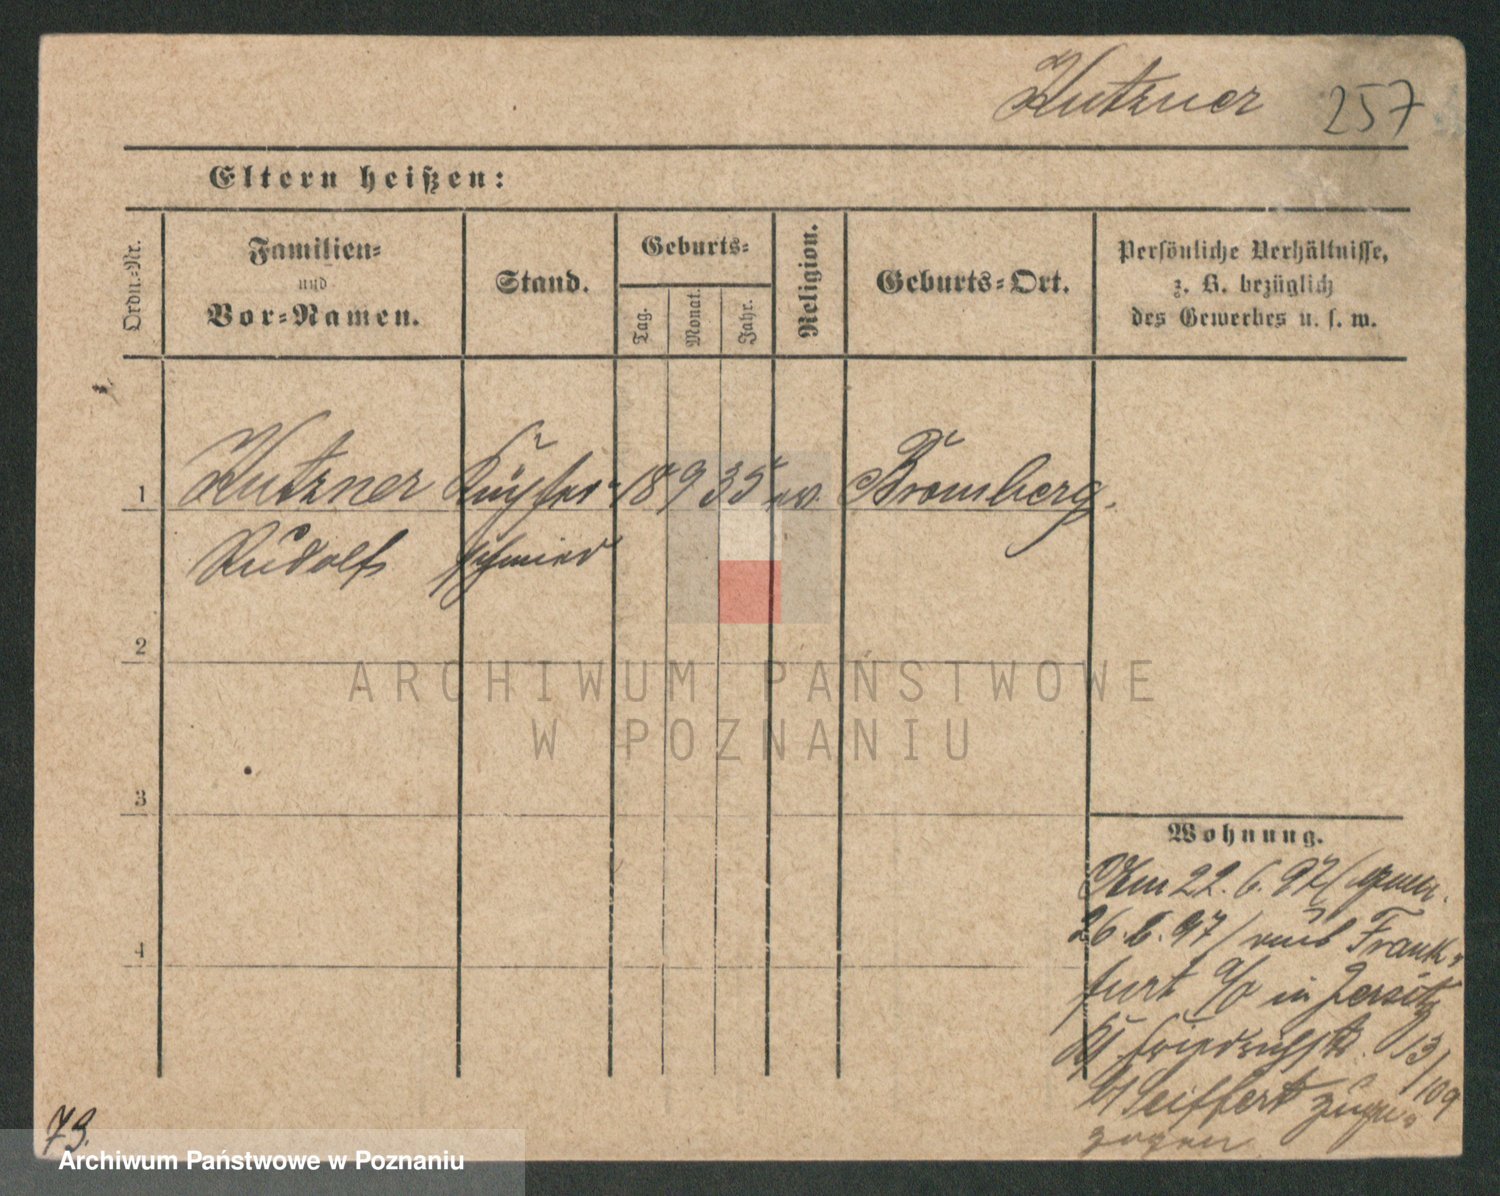 Kutzner 257
Eltern heißen:
Ordn.-Nr.
Familien-
und
Vor-Namen.
Stand.
Geburts-
Tag.
Monat.
Jahr.
Religion.
Geburts-Ort.
Persönliche Verhältnisse,
z. B. bezüglich
des Gewerbes u. s. w.
1 Kutzner Kupfer- 18 9 35 ev. Bromberg.
Rudolf schmied
2
3
4
Wohnung.
Am 22. 6. 97 (gem.
26. 6. 97) aus Frank-
furt a/O in Jersitz
Kf. Friedrichstr. 13/109
b/ Seiffert zuge-
zogen
73.
ARCHIWUM PAŃSTWOWE
W POZNANIU
Archiwum Państwowe w Poznaniu